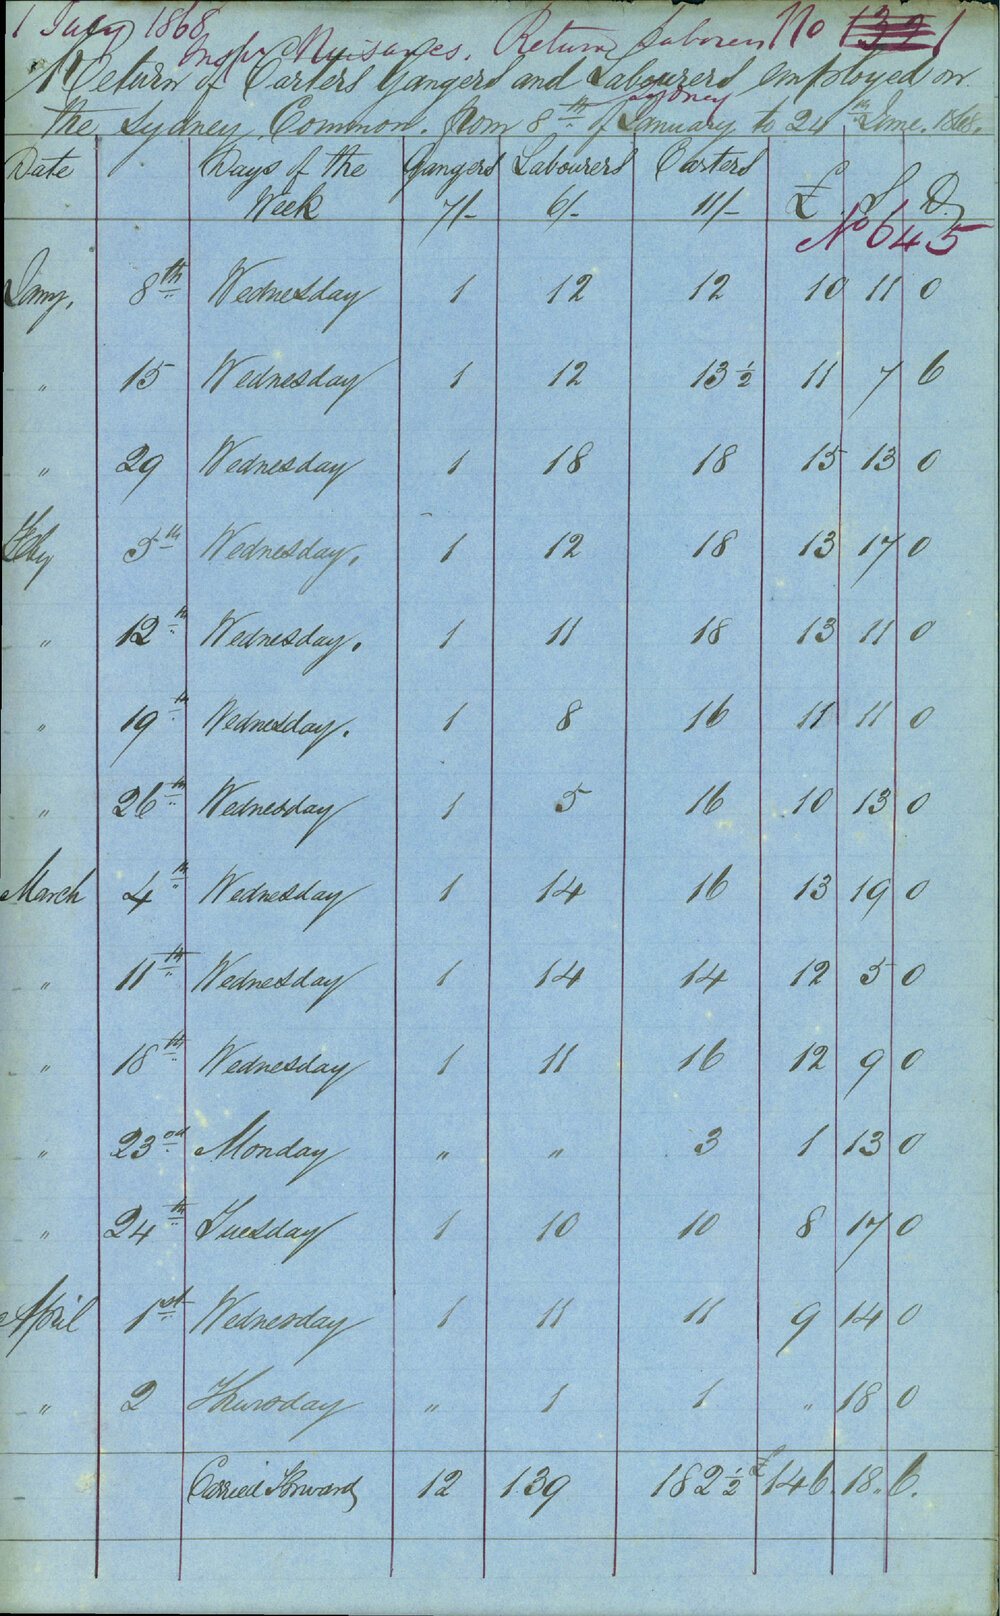 1 July 1868
Insp. Nuisances. Return Laborers No 1321
A Return of Carters Gangers and Labourers employed on
Sydney
the Sydney Common. from 8th of January to 24th June. 1868.
Date Days of the Week Gangers 7/- Labourers 6/- Carters 11/- £ S D.
No 645
Jany. 8th Wednesday 1 12 12 10 11 0
" 15 Wednesday 1 12 13½ 11 7 6
" 29 Wednesday 1 18 18 15 13 0
Feby 5th Wednesday. 1 12 18 13 17 0
" 12th Wednesday. 1 11 18 13 11 0
" 19th Wednesday. 1 8 16 11 11 0
" 26th Wednesday 1 5 16 10 13 0
March 4th Wednesday 1 14 16 13 19 0
" 11th Wednesday 1 14 14 12 5 0
" 18th Wednesday 1 11 16 12 9 0
" 23rd Monday " " 3 1 13 0
" 24th Tuesday 1 10 10 8 17 0
April 1st Wednesday 1 11 11 9 14 0
" 2 Thursday " 1 1 " 18 0
Carried Forward 12 139 182½ £146. 18. 6.